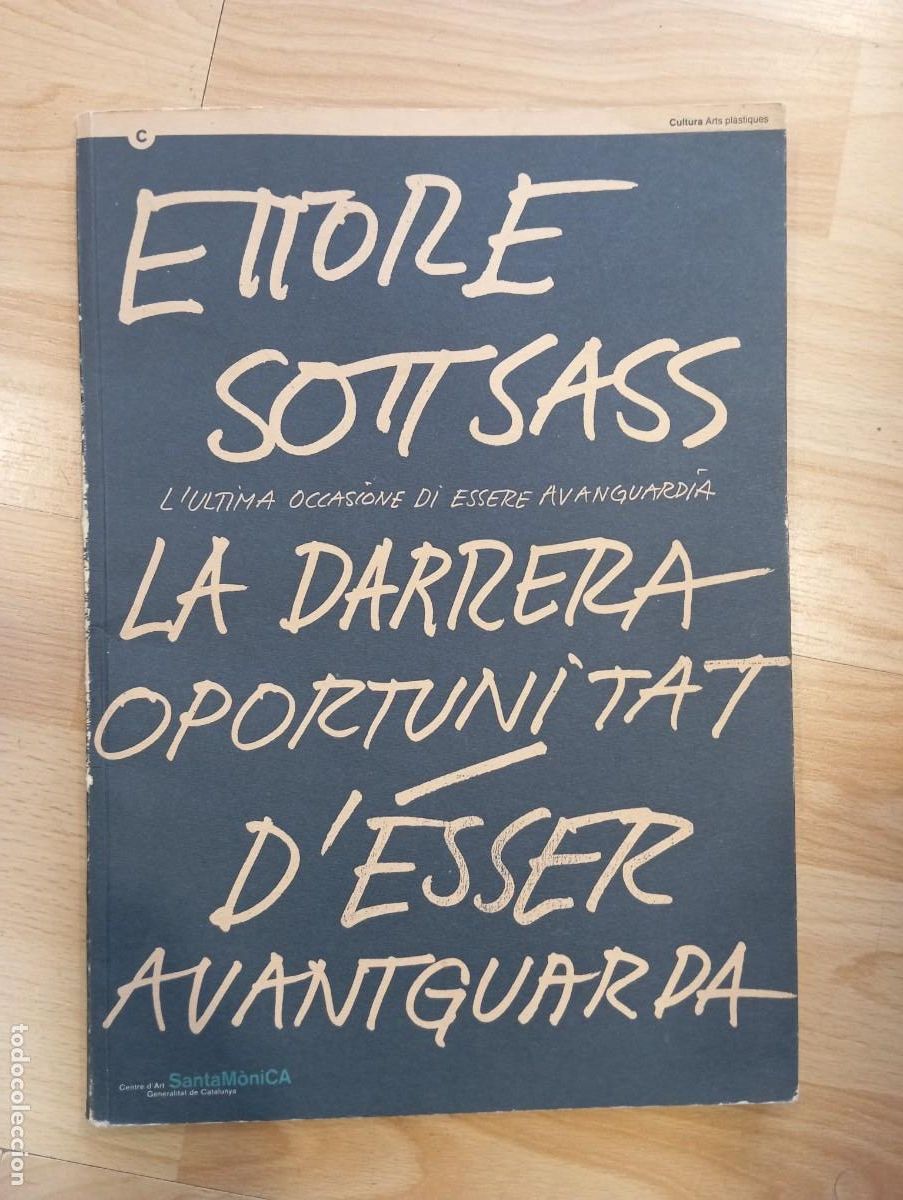 C
Cultura Arts plàstiques
ETTORE
SOTTSASS
L'ULTIMA OCCASIONE DI ESSERE AVANGUARDIA
LA DARRERA
OPORTUNITAT
D'ÉSSER
AVANTGUARDA
Centre d'Art SantaMòniCA
Generalitat de Catalunya
todocoleccion